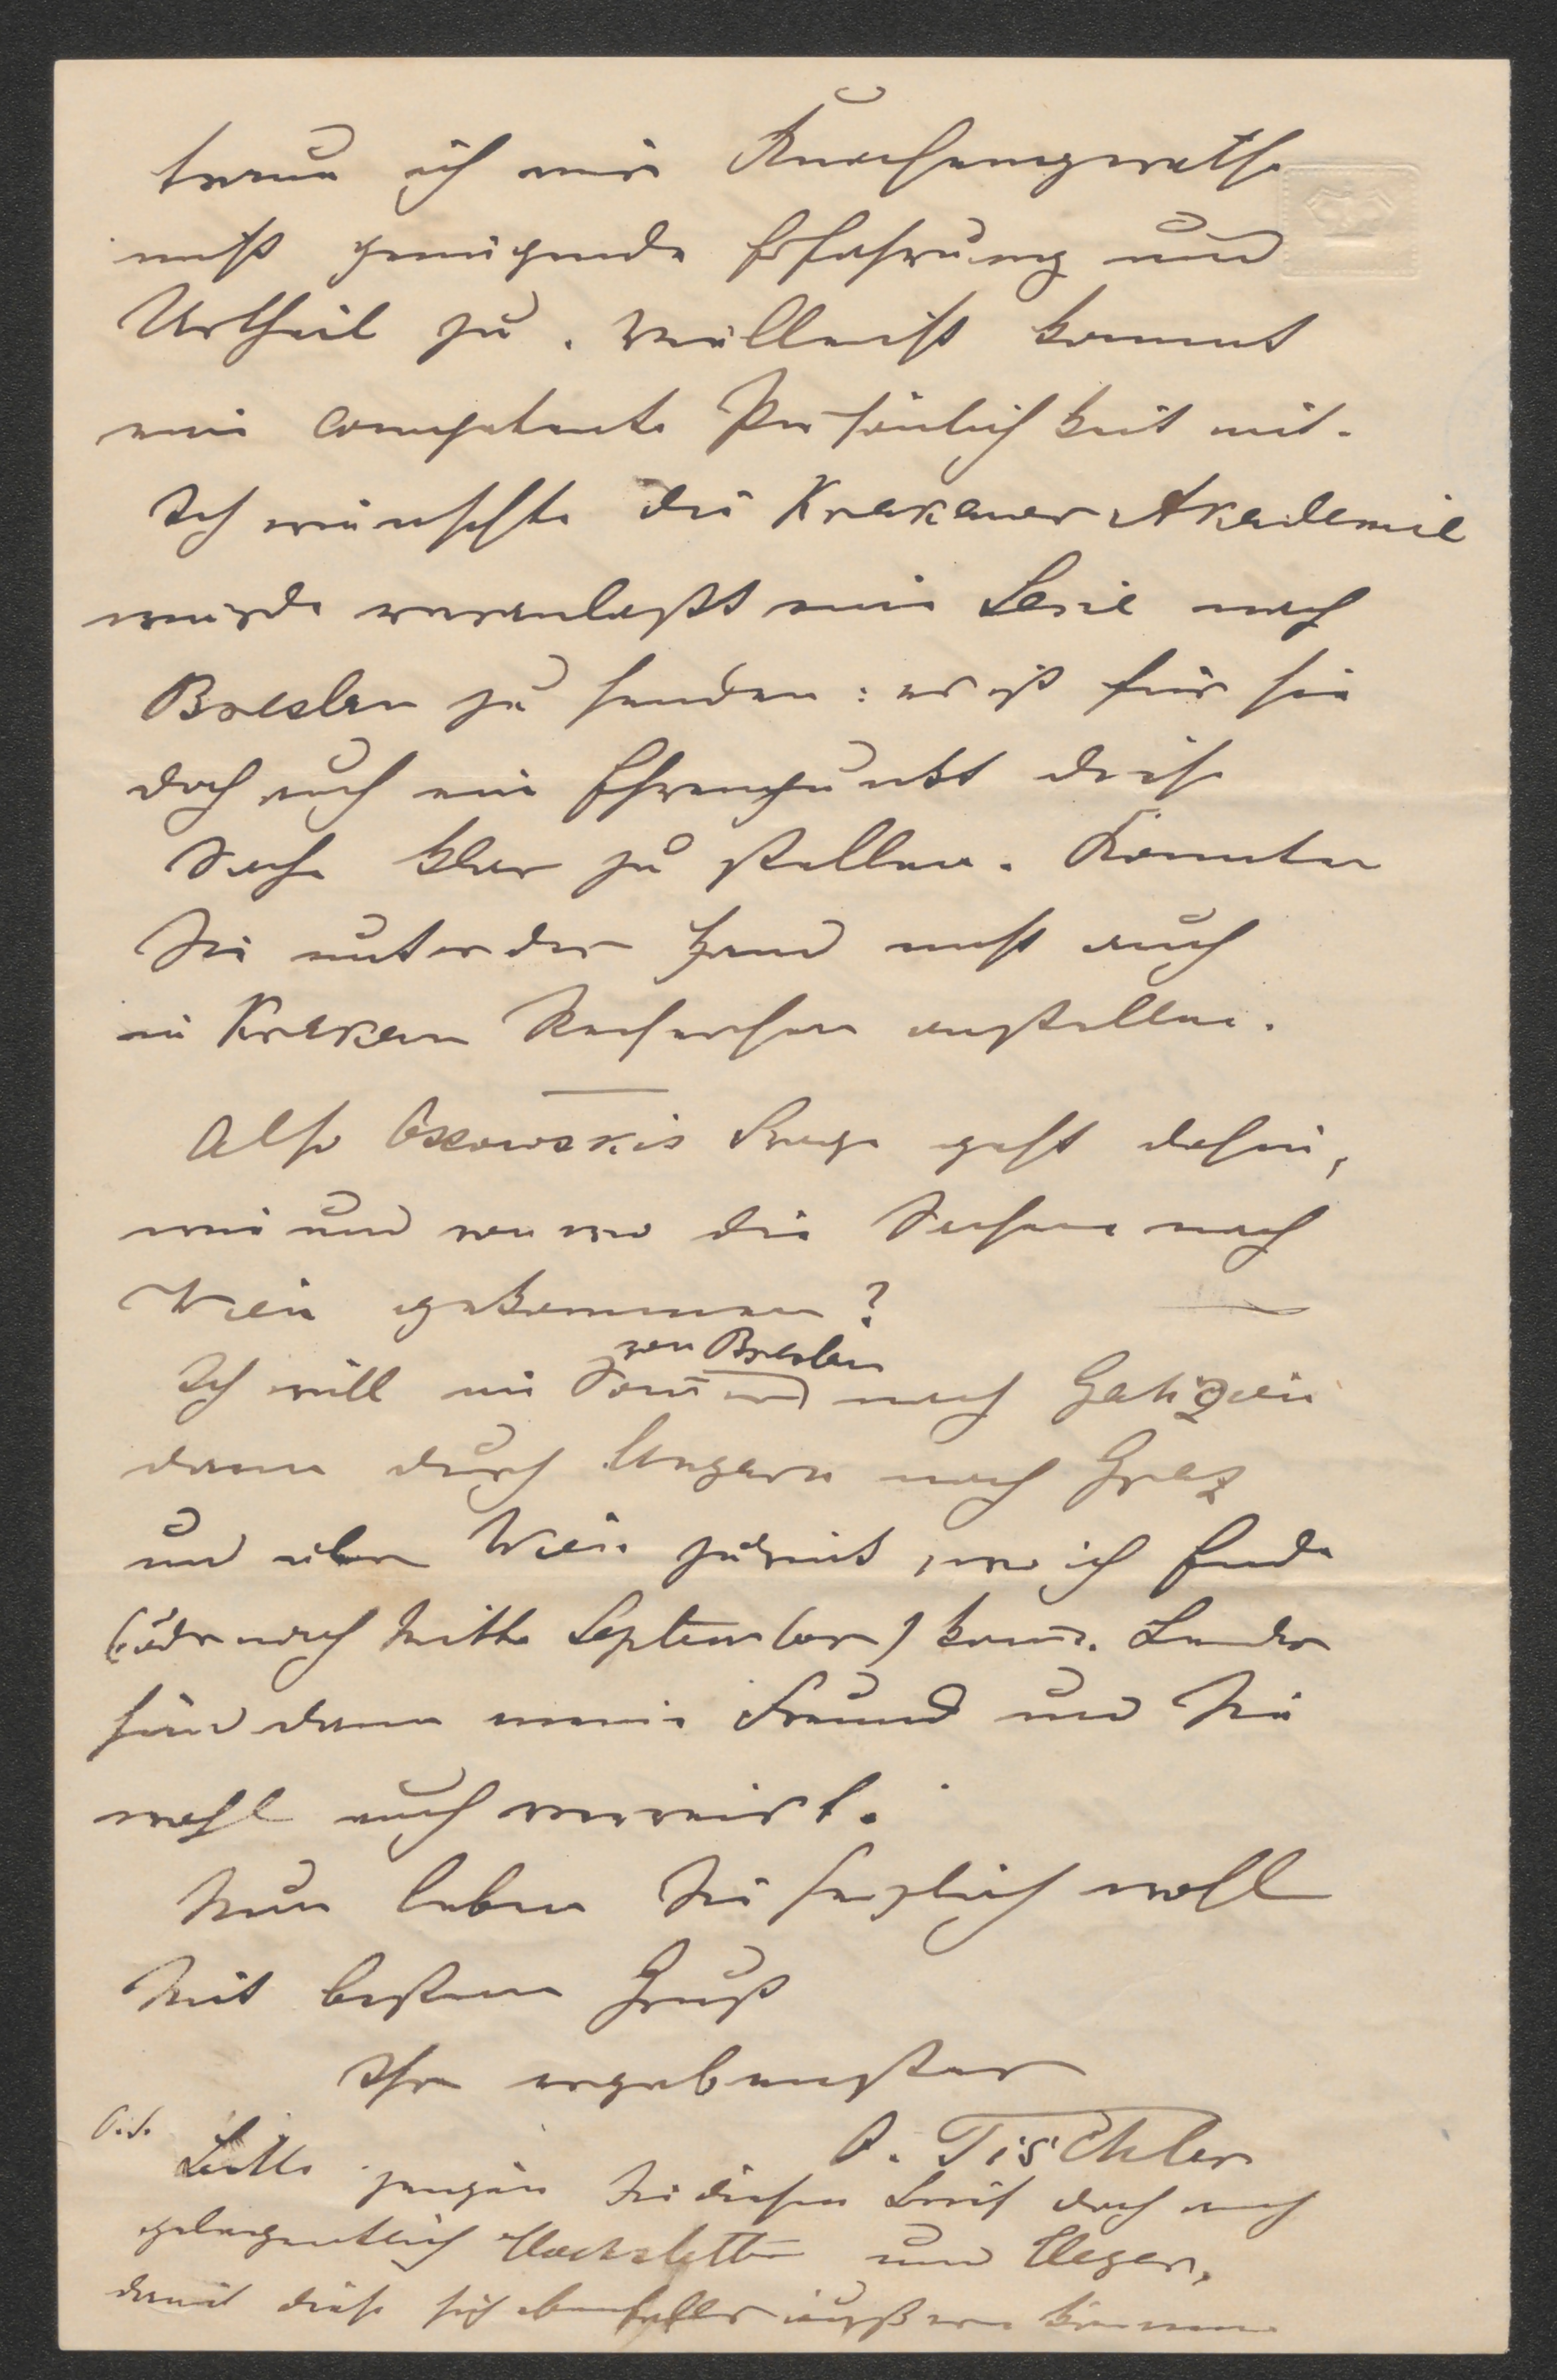 traue ich mir Knochengeräthe
nicht genügende Erfahrung und
Urtheil zu. Vielleicht kommt
eine competente Persönlichkeit mit.
Ich wünschte die Krakauer Akademie
würde veranlaßt eine Serie nach
Breslau zu senden: es ist für sie
doch auch ein Ehrenpunkt diese
Sache klar zu stellen. Könnten
Sie unter der Hand nicht auch
in Krakau Recherchen anstellen.
Also Ossowskis Frage geht dahin,
wie und von wo die Sachen nach
Wien gekommen?
von Breslau
Ich will im Som̅er nach Galizien
dann durch Ungarn nach Graz
und über Wien zurück, wo ich Ende
(oder nach Mitte September) kom̅e. Leider
sind dann meine Freund und Sie
wohl auch verreist.
Nun leben Sie herzlich wohl
Mit bestem Gruß
Ihr ergebenster
O. Tischler
Bitte zeigen Sie diesen Brief doch auch
gelegentlich Hochstetter und Heger,
damit diese sich ebenfalls äußern können